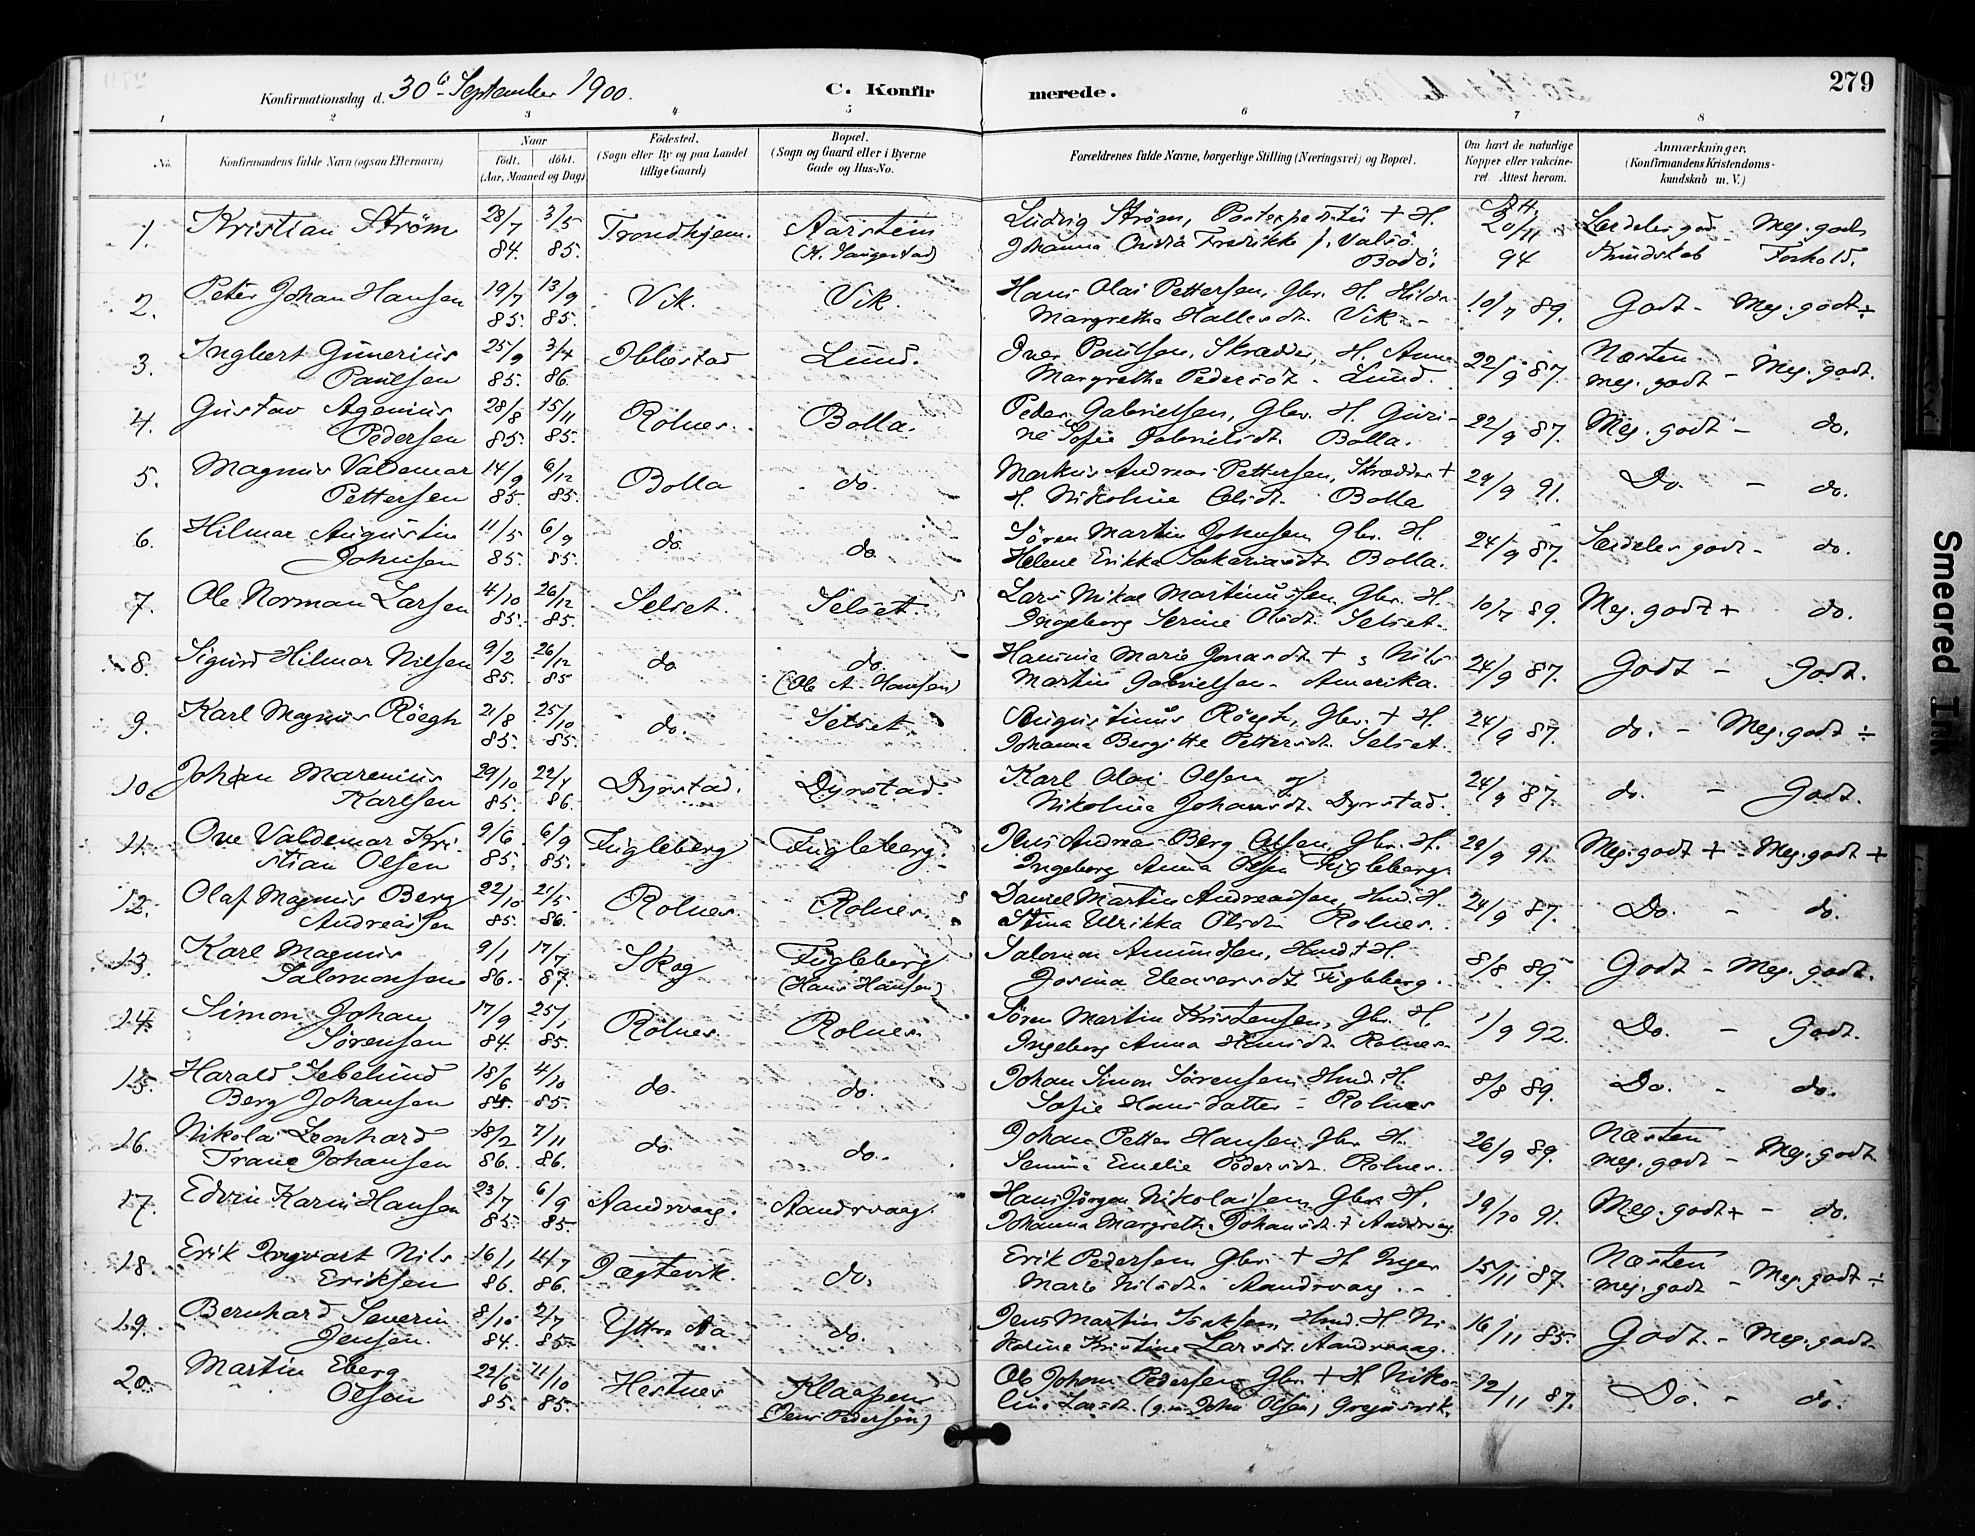 Konfirmationsdag d. 30te September 1900.
C. Konfirmerede.
279
1 2 3 4 5 6 7 8
No.
Konfirmandens fulde Navn (ogsaa Efternavn)
Naar
födt. döbt.
(Aar, Maaned og Dag)
Födested.
(Sogn eller By og paa Landet
tillige Gaard)
Bopæl.
(Sogn og Gaard eller i Byerne
Gade og Hus-No.
Forældrenes fulde Navne, borgerlige Stilling (Næringsvei) og Bopæl.
Om havt de naturlige
Kopper eller vakcine-
ret. Attest herom.
Anmærkninger,
(Konfirmandens Kristendoms-
kundskab m. V.)
1. Kristian Strøm 28/7 84. 3/5 85. Trondhjem. Aarstein Ludvig Strøm, + H.
Johanna Fredrikke f. Valsö Bodö. 20/11 94 Særdeles god Kundskab - Meg. godt Forhold.
2. Peter Johan Hansen 19/7 85. 13/9 85. Vik. Vik. Hans Olai Pettersen, Gbr. H. Hilda
Margretha Hallesdt. Vik - 10/7 89. Godt - Meg. godt ÷
3. Ingbert Gunerius
Paulsen 25/9 85. 3/4 86. Ibbestad Lund. Iver Paulsen, Skrædder, H. Anne
Margretha Pedersdt. Lund. 22/9 87. Næsten
meg. godt - Meg. godt.
4. Gustav Agenius
Pedersen 28/8 85. 15/11 85. Rolnes. Bolla. Peder Gabrielsen, Gbr. H. Guri-
ne Sofie Gabrielsdt. Bolla. 22/9 87. Meg. godt - do.
5. Magnus Valdemar
Pettersen 14/9 85. 6/12 85. Bolla do. Markus Andreas Pettersen, Skrædder +
H. Nikoline Olsdt. Bolla 24/9 91. Do. - do.
6. Hilmar Augustin
Johnsen 11/5 85. 6/9 85. do. do. Søren Martin Johnsen Gbr. H.
Helene Erikka Sakariasdt. Bolla. 24/9 87. Særdeles godt - do.
7. Ole Norman Larsen 4/10 85. 26/12 85. Selset. Selset. Lars Nikol Martinussen, Gbr. H.
Ingeborg Serine Olsdt. Selset. 10/7 89. Meg. godt + do.
8. Sigurd Hilmar Nilsen 9/2 85. 26/12 85 do do
(Ole A. Hansen) Marie Jonasdt + Nils
Martin Gabrielsen - Amerika. 24/9 87. Godt - Godt.
9. Karl Magnus Röegh 21/8 85. 25/10 85. do. Selset. Augustinus Röegh, Gbr. + H.
Johanna Bergitte Pettersdt. Selset. 24/9 87. do. - Meg. godt ÷
10. Johan Marenius
Karlsen 29/10 85. 22/4 86. Dyrstad. Dyrstad. Karl Olai Olsen og
Nikoline Johansdt. Dyrstad. 24/9 87. do. - Godt.
11. Ove Valdemar Kri-
stian Olsen 9/6 85. 6/9 85. Fugleberg Fugleberg. Jens Andrea Berg Olsen, Gbr. H.
Ingeborg Anna Olsen Fugleberg. 28/9 91. Meg. godt + - Meg. godt +
12. Olaf Magnus Berg
Andreassen 22/10 85. 21/5 86. Rolnes. Rolnes. Daniel Martin Andreassen, Hmd. H.
Stina Ulrikka Olsdt. Rolnes. 24/9 87. Do. - do.
13. Karl Magnus
Salomonsen 9/1 86. 17/7 87. Skog Fugleberg
(Hans Hansen) Salomon Amundsen, Hmd. + H.
Josina Eleasersdt Fugleberg. 8/8 89. Godt - Meg. godt.
14. Simon Johan
Sørensen 17/9 84. 25/1 85. Rolnes. Rolnes. Søren Martin Kristensen, Gbr. H.
Ingeborg Anna Rolnes. 1/9 92. Do. - Godt.
15. Harald Sebelund
Berg Johansen 18/6 85. 4/10 85. do. do. Johan Simon Sørensen, Hmd. H.
Sofie Hansdatter - Rolnes 8/8 89. Do. - do.
16. Nikolai Leonhard
Trane Johansen 18/2 86. 7/11 86. do. do. Johan Petter Hansen Gbr. H.
Emelie Pedersdt. Rolnes. 26/9 89. Næsten
meg. godt - Meg. godt
17. Edvin Karin Hansen 23/7 85. 6/9 85. Aandrvaag. Aandrvaag. Hans Jörgen Nikolaisen, Gbr. H.
Johanna Margretha Johansdt. + Aandrvaag 19/10 91. Meg. godt + - do.
18. Erik Ingvart Nils
Eriksen 16/1 86. 4/7 86. Jægtevik. do. Erik Pedersen Gbr. + H. Inger
Marie Nilsdt. Aandrvaag. - 15/11 87. Næsten
meg. godt - Meg. godt ÷
19. Bernhard Severin
Jensen 8/10 84. 2/7 85. Yttre Aa do. Jens Martin Isaksen, Hmd. H. Ni-
koline Kristine Larsdt. Aandrvaag. 16/11 85. Godt. - Meg. godt.
20. Martin Eberg
Olsen 22/6 85. 11/10 85. Hestnes Klaapen
(Jens Pedersen) Ole Johan Pedersen Gbr. + H. Niko-
line Larsdt. (g. m. John Olsen) 12/11 87. Do. - do.
Smeared Ink